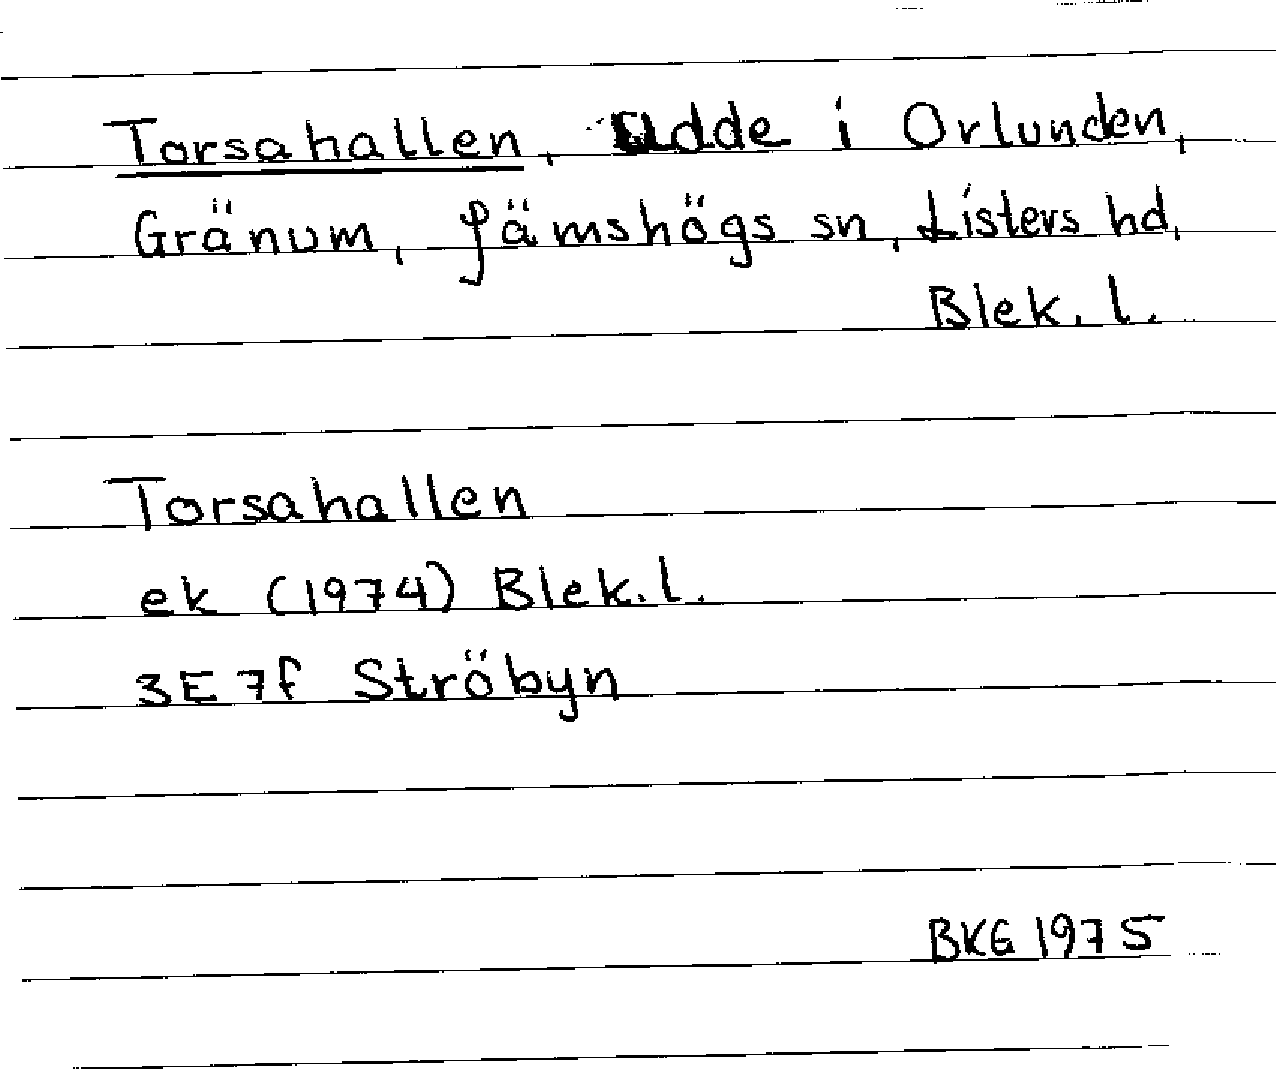 Torsahallen, udde i Orlunden,
Gränum, Jämshögs sn, Listers hd,
Blek. l.
Torsahallen
ek (1974) Blek. l.
3E 7f Ströbyn
BKG 1975